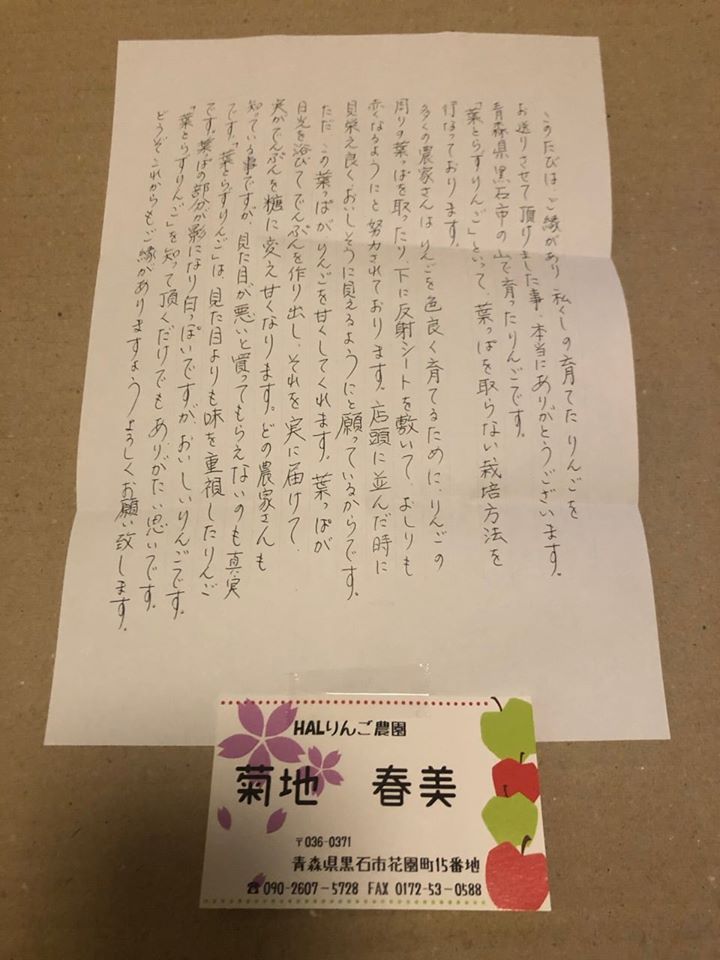 このたびは、ご縁があり、私くしの育てたりんごを
お送りさせて頂けました事、本当にありがとうございます。
青森県黒石市の山で育ったりんごです。
「葉とらずりんご」といって、葉っぱを取らない栽培方法を
行なっております。
多くの農家さんはりんごを色良く育てるために、りんごの
周りの葉っぱを取ったり、下に反射シートを敷いて、おしりも
赤くなるようにと努力されております。店頭に並んだ時に
見栄え良く、おいしそうに見えるようにと願っているからです。
ただ、この葉っぱがりんごを甘くしてくれます。葉っぱが
日光を浴びてでんぷんを作り出し、それを実に届けて、
実がでんぷんを糖に変え甘くなります。どの農家さんも
知っている事ですが、見た目が悪いと買ってもらえないのも真実
です。「葉とらずりんご」は、見た目よりも味を重視したりんご
です。葉っぱの部分が影になり白っぽいですが、おいしいりんごです。
「葉とらずりんご」を知って頂くだけでもありがたい思いです。
どうぞこれからもご縁がありますようよろしくお願い致します。
HALりんご農園
菊地 春美
〒036-0371
青森県黒石市花園町15番地
☎090-2607-5728 FAX 0172-53-0588